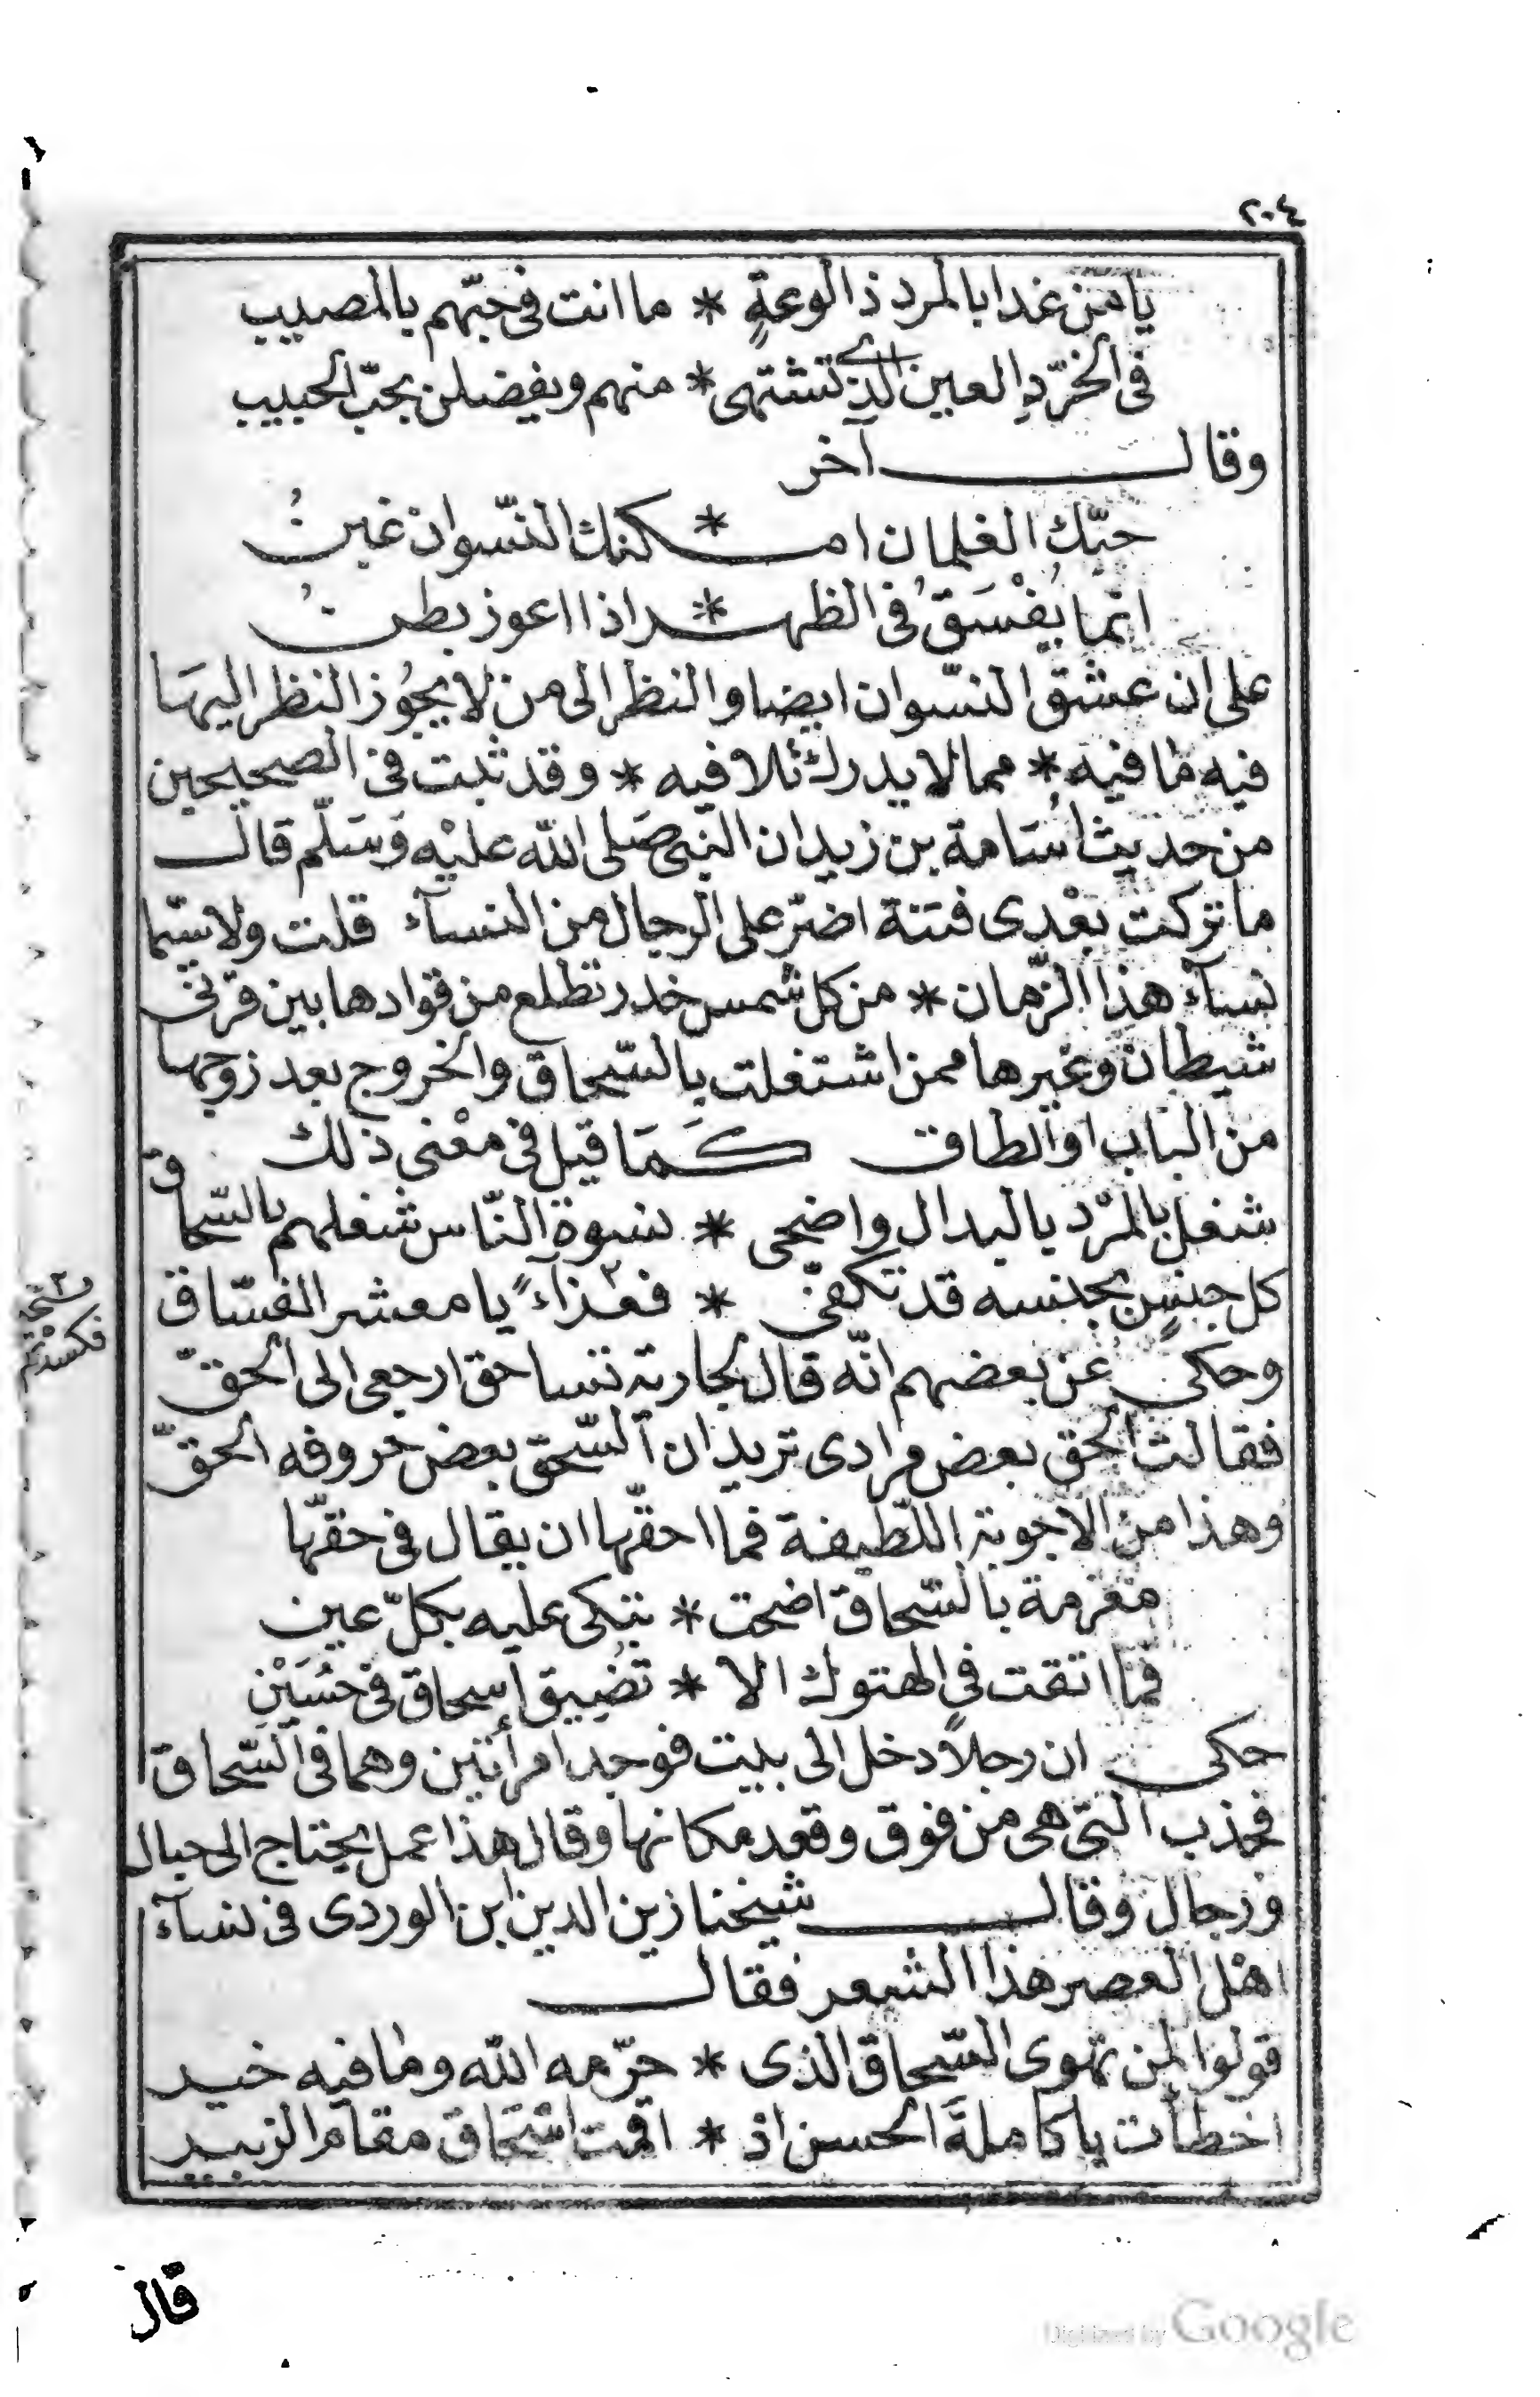 ٢٠٤
يا من غدا بالمرد ذا لوعةٍ * ما انت فى حبّهم بالمصيب
فى الخرّد العين الذى تشتهى * منهم ويفضلن بحبّ الحبيب
وقال آخر
حبّك الغلمان ام * كنك النسّوان غبنُ
انّما يُفْسَقُ فى الظهر * اذا اعوز بطنُ
على ان عشق النسّوان ايضا والنظر الى من لا يجُوز النظر اليهَا
فيه ما فيه * مما لا يدرك تلافيه * وقد ثبت فى الصحيحين
من حديث اُسَامة بن زيد ان النّبى صَلى الله عليْه وَسَلّم قال
ما تركت بعْدى فتنة اضرّ على الرجال من النسآء قلت ولا سيّما
نسآء هذا الزّمان * من كل شمس خدر تطلع من قوادها بين قرنى
شيطان وغيرها ممن اشتغلت بالسّحاق والخروج بعد زوجها
من الباب او الطاق كَمَا قيل فى معْنى ذلك
شغل بالمرّد يا لبدال واضحى * نسوة النّاس شغلهم بالسّحاق
كل جنسٍ بجنسه قد تكفىّ * فعزآءً ٢ يا معشر الفسّاق
٢ نسخة
فكسدتم
وحكى عن بعضهم انّه قال لجارية تساحق ارجعى الى الحقّ
فقالت الحق بعض مرادى تريد ان السّحق بعض حروفه الحقّ
وهذا من الاجوبة اللّطيفة فما احقّها ان يقال فى حقّها
مغرمة بالسّحاق اضحت * تبكى عليه بكلّ عين
فما اتقت فى الهتوك الا * تضييق اسحاق فى حُسَيْنِ
حكى ان رجلاً دخل الى بيت فوجد امرأتين وهما فى السّحاق
فجذب التى هى من فوق وقعد مكانها وقال هذا عمل يحتاج الى حبال
ورجال وقال شيخنا زين الدين ابن الوردى فى نسآء
اهل العصر هذا الشعر فقال
قولوا لمن تهوى السّحاق الذى * حرّمه الله وما فيه خير
اخطأت يا كاملةَ الحسن اذ * اقمت اسْحَاق مقام الزبير
قال
Digitized by Google